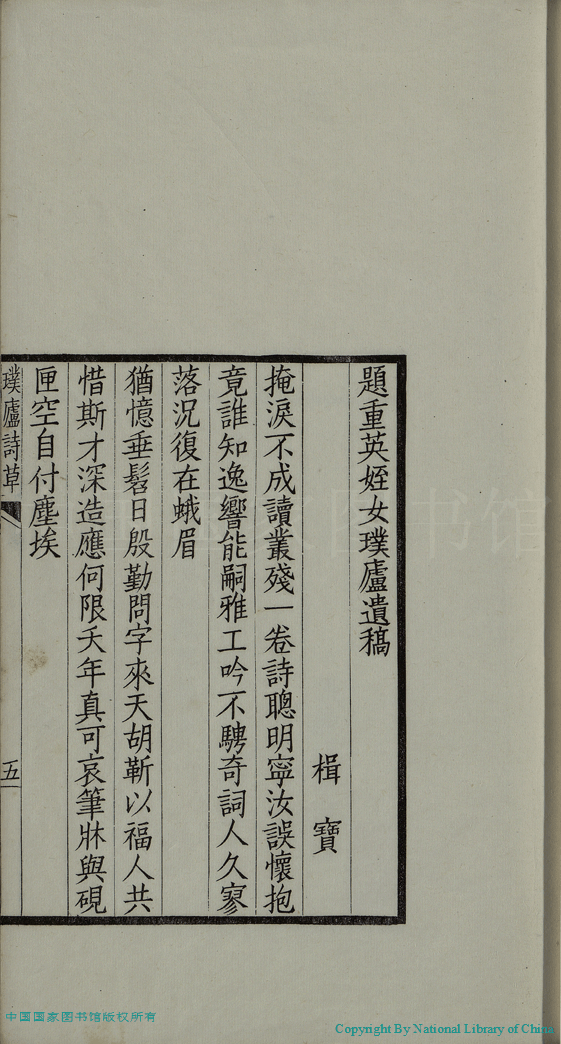 題重英姪女璞廬遺稿
楫寶
掩淚不成讀叢殘一卷詩聰明寧汝誤懷抱
竟誰知逸響能嗣雅工吟不騁奇詞人久寥
落況復在蛾眉
猶憶垂髫日殷勤問字來天胡靳以福人共
惜斯才深造應何限夭年真可哀筆牀與硯
匣空自付塵埃
璞廬詩草
五
中国国家图书馆版权所有
Copyright By National Library of China